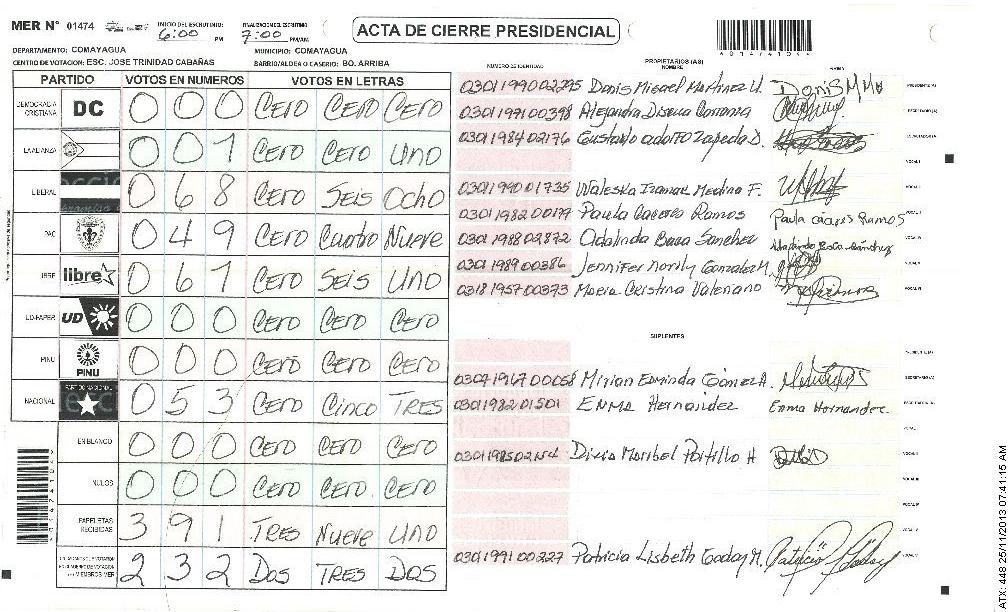 MER N° 01474 INICIO DEL ESCRUTINIO: 6:00 PM FINALIZACION EL ESCRITINIO 7:00 PM/AM
ACTA DE CIERRE PRESIDENCIAL
DEPARTAMENTO: COMAYAGUA MUNICIPIO: COMAYAGUA
CENTRO DE VOTACION: ESC. JOSE TRINIDAD CABAÑAS BARRIO/ALDEA O CASERIO: BO. ARRIBA
PARTIDO VOTOS EN NUMEROS VOTOS EN LETRAS
DEMOCRACIA CRISTIANA DC 0 0 0 Cero Cero Cero
LA ALIANZA 0 0 1 Cero Cero Uno
LIBERAL 0 6 8 Cero Seis Ocho
PAC 0 4 9 Cero Cuatro Nueve
LIBRE libre 0 6 1 Cero Seis Uno
UD-FAPER UD 0 0 0 Cero Cero Cero
PINU PINU 0 0 0 Cero Cero Cero
NACIONAL PARTIDO NACIONAL 0 5 3 Cero Cinco Tres
EN BLANCO 0 0 0 Cero Cero Cero
NULOS 0 0 0 Cero Cero Cero
PAPELETAS RECIBIDAS 3 9 1 Tres Nueve Uno
2 3 2 Dos Tres Dos
NUMERO DE IDENTIDAD PROPIETARIOS (AS) NOMBRE FIRMA
0301199002295 Donis Misael Martinez U. Donis M M U PRESIDENTE (A)
0301199100398 Alejandra Disena SECRETARIO (A)
0301198402176 Gustavo adolfo Zapeda D. ESCRUTADOR (A)
VOCAL I
0301199001735 Waleska Medina F.
Paula Caceres Ramos Paula Cáceres Ramos
0301198802872 Adalinda Baca Sanchez Adalinda Baca Sánchez
0301198900386 Jennifer Gonzalez M.
0318195700373 Maria Cristina Valeriano
SUPLENTES
PRESIDENTE (A)
Mirian Esminda Gómez A. SECRETARIO (A)
0301198201501 Enma Hernandez Enma Hernandez ESCRUTADOR (A)
Maribel Portillo H
0301199100227 Patricia Lisbeth Godoy M. Patricia Godoy
ATX: 448 25/11/2013 07:41:15 AM